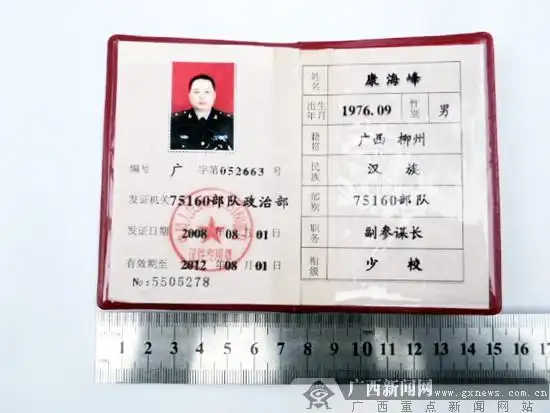 编号 广 字第052663 号
发证机关 75160部队政治部
发证日期 2008 年 08 月 01 日
有效期至 2012 年 08 月 01 日
No:5505278
证件专用章
姓名 康海峰
出生年月 1976.09 性别 男
籍贯 广西 柳州
民族 汉 族
部别 75160部队
职务 副参谋长
衔级 少 校
1 2 3 4 5 6 7 8 9 10 11 12 13 14 15 16 17
广西新闻网
www.gxnews.com.cn
广西重点新闻网站